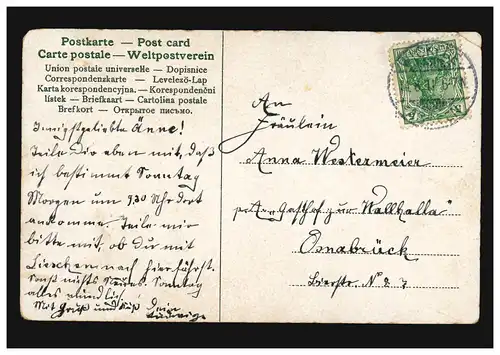 Postkarte — Post card
Carte postale — Weltpostverein
Union postale universelle — Dopisnice
Correspondenzkarte — Levelező-Lap
Karta korespondencyjna. — Korespondenční
lístek — Briefkaart — Cartolina postale
Brefkort — Открытое письмо.
Innigstgeliebte Änne!
Teile Dir eben mit, daß
ich bestimmt Sonntag
Morgen um 9.30 Uhr dort
ankomme. Teile mir
bitte mit, ob Du mit
Lieschen nach hier fährst.
Sonst nichts Neues. Sonntag
alles mündlich.
Mit Gruß und Kuß Dein
An
Fräulein
Anna Westermeier
Gasthof zur Wallhalla
Osnabrück
Bierstr. No